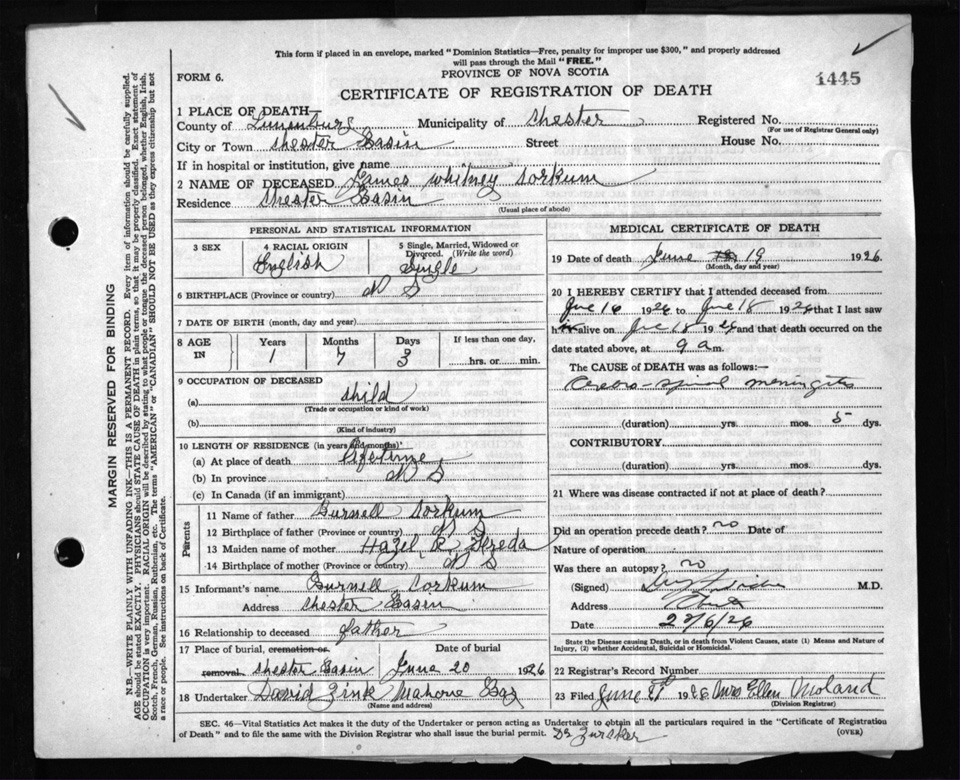 This form if placed in an envelope, marked "Dominion Statistics—Free, penalty for improper use $300," and properly addressed
will pass through the Mail "FREE."
FORM 6.
PROVINCE OF NOVA SCOTIA
1445
CERTIFICATE OF REGISTRATION OF DEATH
1 PLACE OF DEATH—
County of Lunenburg Municipality of Chester Registered No.
(For use of Registrar General only)
City or Town Chester Basin Street House No.
If in hospital or institution, give name
2 NAME OF DECEASED James Whitney Corkum
Residence Chester Basin
(Usual place of abode)
PERSONAL AND STATISTICAL INFORMATION
3 SEX 4 RACIAL ORIGIN 5 Single, Married, Widowed or
Divorced. (Write the word)
English Single
6 BIRTHPLACE (Province or country) N S
7 DATE OF BIRTH (month, day and year)
8 AGE IN Years Months Days If less than one day,
1 7 3 hrs. or min.
9 OCCUPATION OF DECEASED
(a) Child
(Trade or occupation or kind of work)
(b)
(Kind of industry)
10 LENGTH OF RESIDENCE (in years and months)
(a) At place of death Lifetime
(b) In province N S
(c) In Canada (if an immigrant)
Parents
11 Name of father Burnell Corkum
12 Birthplace of father (Province or country) N S
13 Maiden name of mother Hazel R
14 Birthplace of mother (Province or country) N S
15 Informant's name Burnell Corkum
Address Chester Basin
16 Relationship to deceased father
17 Place of burial, cremation or Date of burial
removal Chester Basin June 20 1926
18 Undertaker David Zink Mahone Bay
(Name and address)
MEDICAL CERTIFICATE OF DEATH
19 Date of death June 19 1926
(Month, day and year)
20 I HEREBY CERTIFY that I attended deceased from
June 16 1926 to June 18 1926 that I last saw
him alive on June 18 1926 and that death occurred on
date stated above, at 9 a m.
The CAUSE OF DEATH was as follows:—
Cerebro-spinal meningitis
(duration) yrs. mos. 5 dys.
CONTRIBUTORY
(duration) yrs. mos. dys.
21 Where was disease contracted if not at place of death?
Did an operation precede death? no Date of
Nature of operation
Was there an autopsy? no
(Signed) M.D.
Address
Date 22/6/26
State the Disease causing Death, or in death from Violent Causes, state (1) Means and Nature of
Injury, (2) whether Accidental, Suicidal or Homicidal.
22 Registrar's Record Number
23 Filed June 1926 Mrs Ellen
(Division Registrar)
SEC. 46—Vital Statistics Act makes it the duty of the Undertaker or person acting as Undertaker to obtain all the particulars required in the "Certificate of Registration
of Death" and to file the same with the Division Registrar who shall issue the burial permit.
(OVER)
Dr
MARGIN RESERVED FOR BINDING
N.B.—WRITE PLAINLY WITH UNFADING INK—THIS IS A PERMANENT RECORD. Every item of information should be carefully supplied.
AGE should be stated EXACTLY. PHYSICIANS should STATE CAUSE OF DEATH in plain terms, so that it may be properly classified. Exact statement of
OCCUPATION is very important. RACIAL ORIGIN will be described by stating to what people or tongue the deceased person belonged, whether English, Irish,
Scotch, French, German, Russian, Ruthenian, etc. The terms "AMERICAN" or "CANADIAN" SHOULD NOT BE USED as they express citizenship but not
a race or people. See instructions on back of Certificate.